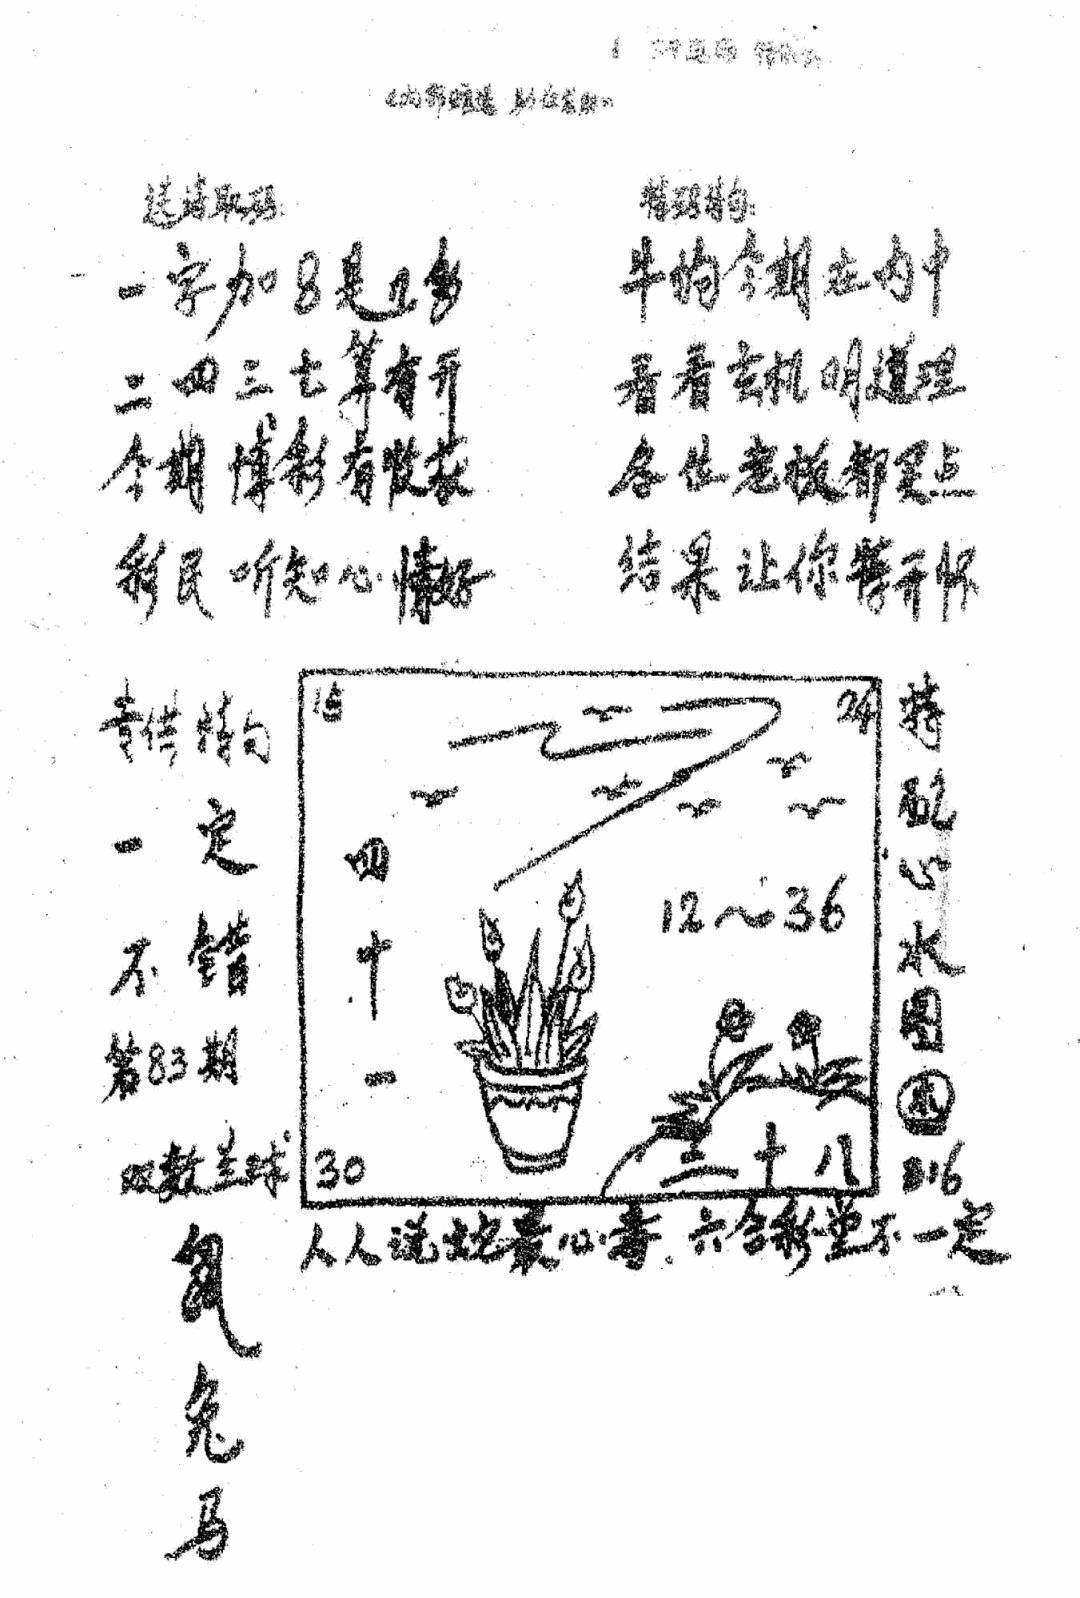 送诗取码:
一字加8是几多
二四三七算有开
今期博彩有收获
彩民听知心情好
特码诗句:
牛的今期在内中
看看玄机明道理
各位老板都买点
结果让你费开怀
特句
一定
不错
第83期
双数兰球
鼠
兔
马
15
24
四十一
12~36
30
三十八
特配心水图
216
人人说蛇最心毒.六合彩堂不一定